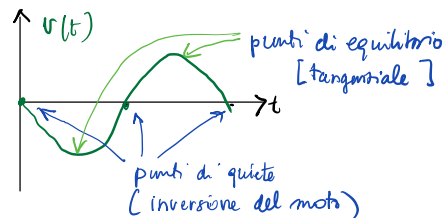 v(t)
punti di equilibrio
[tangenziale]
t
punti di quiete
(inversione del moto)